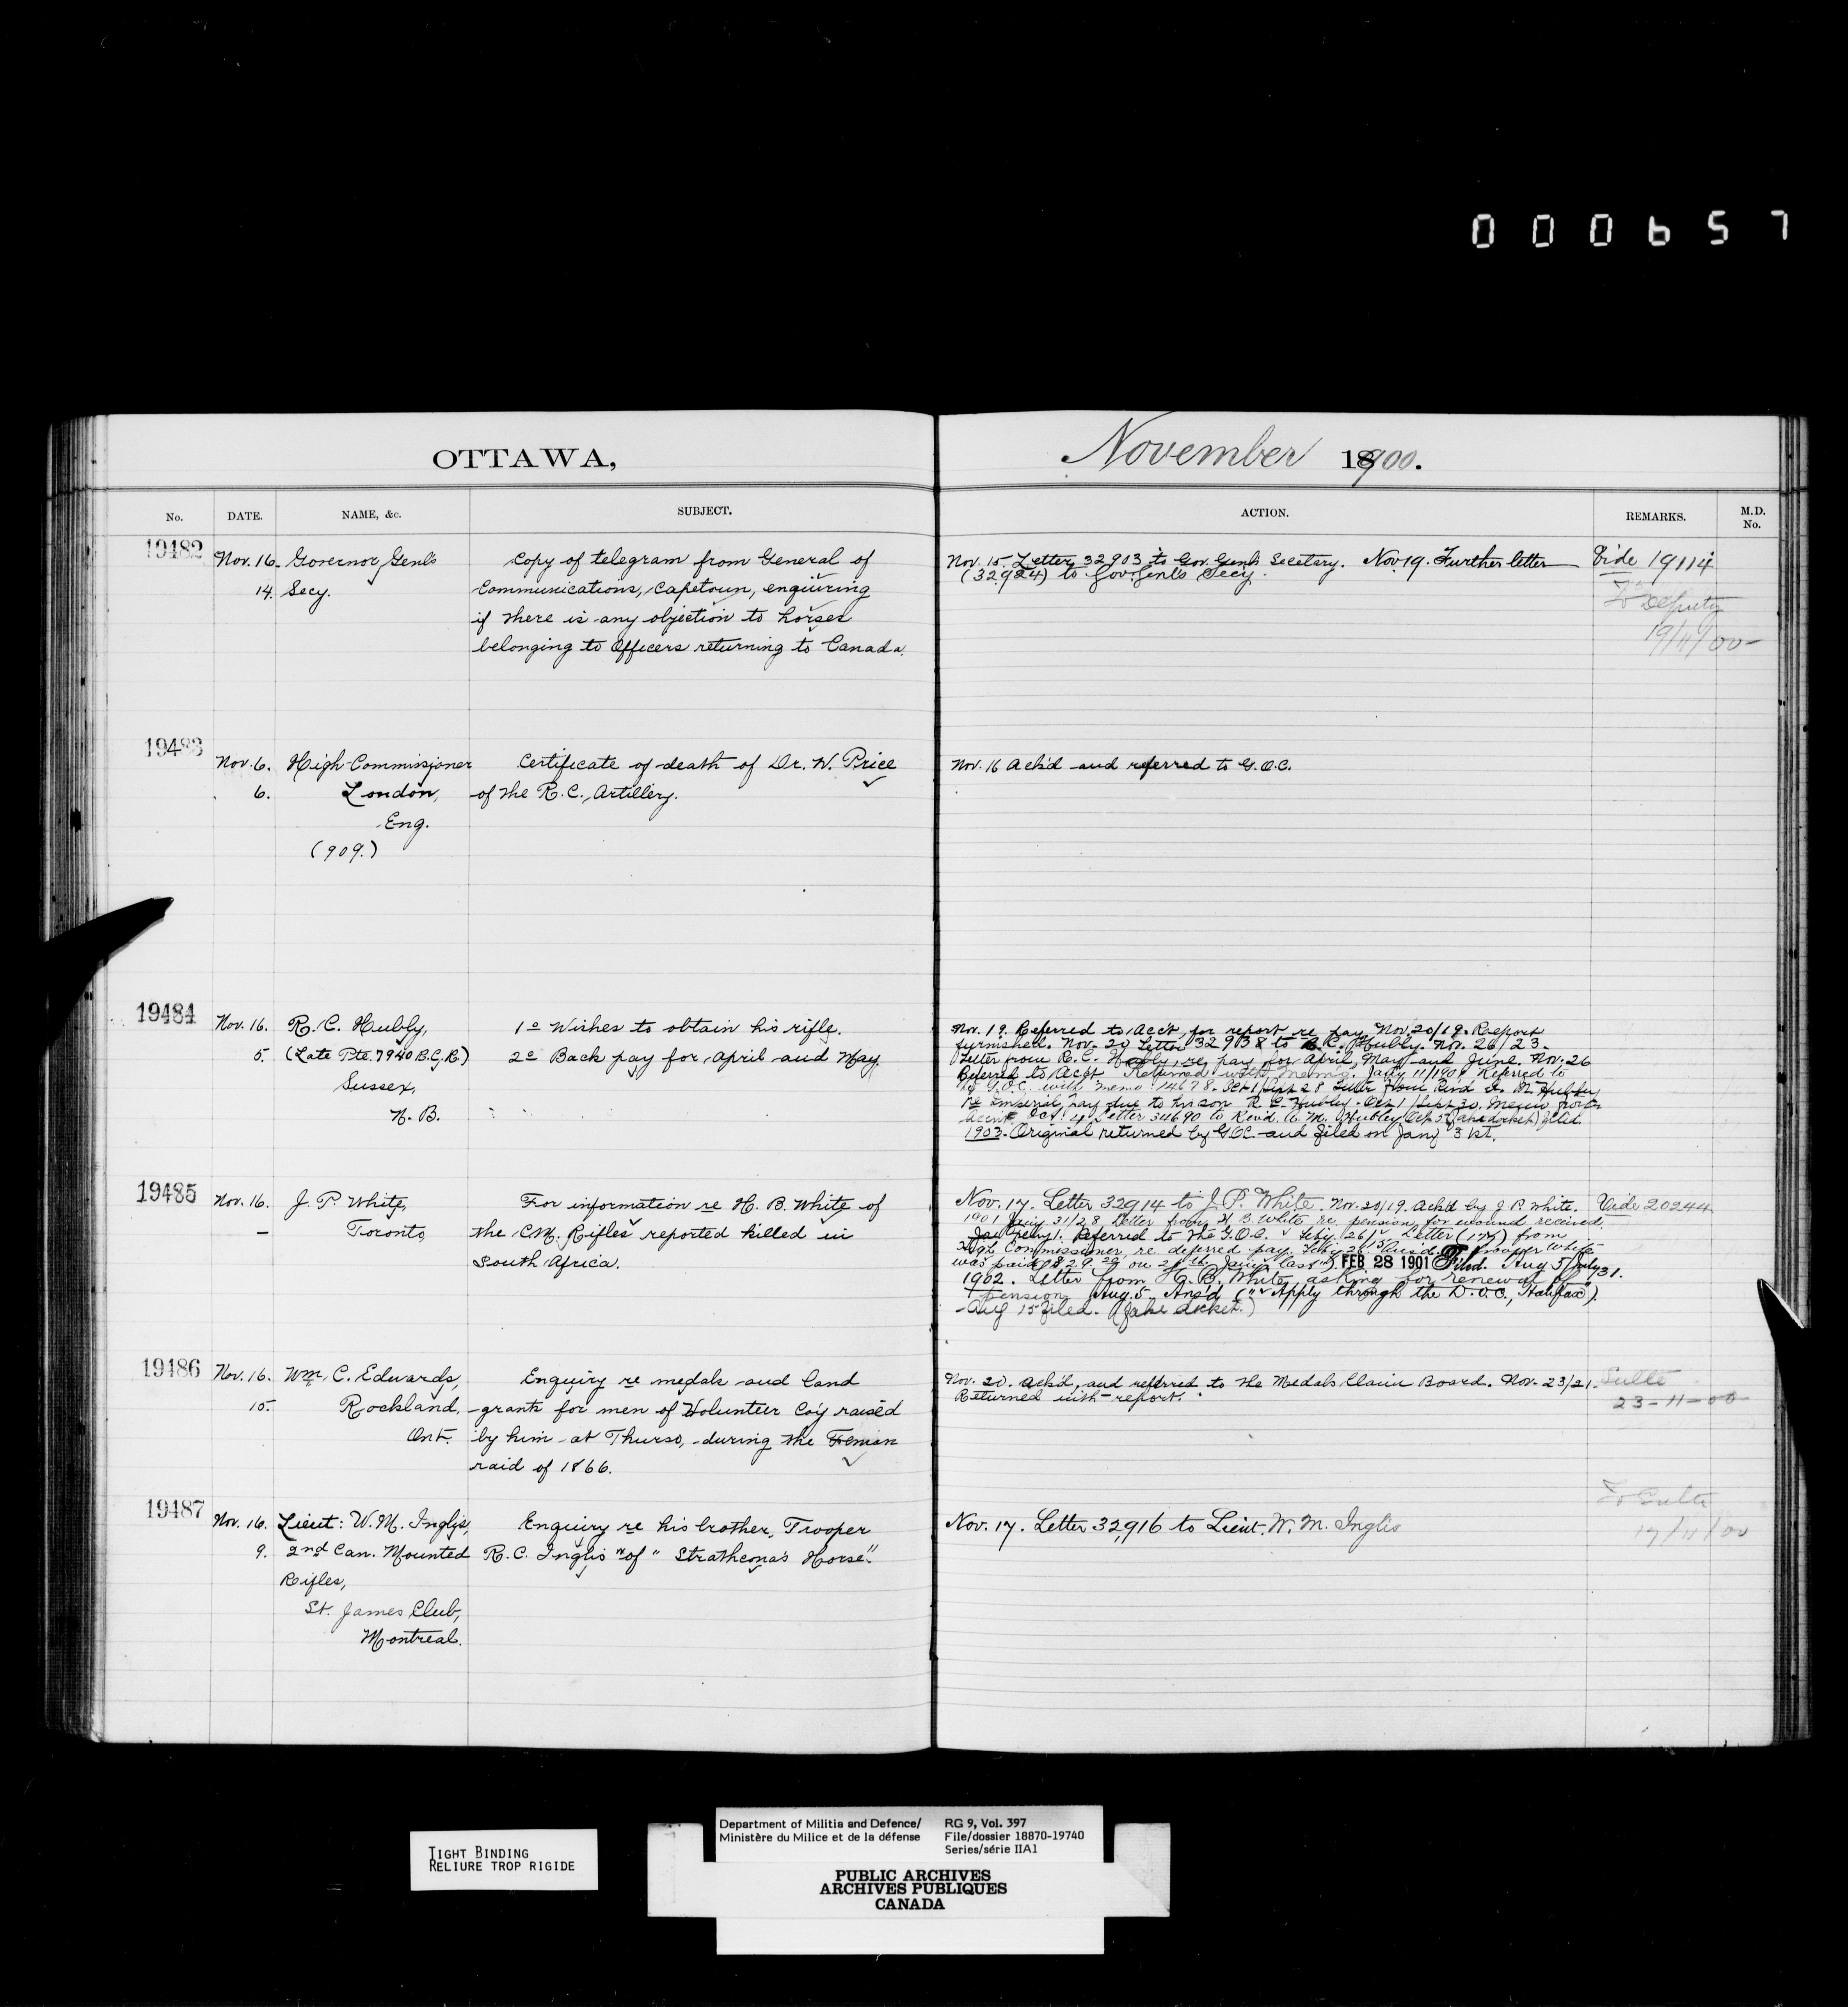 000657
OTTAWA,
November 1900.
No. DATE. NAME, &c. SUBJECT. ACTION. REMARKS. M.D. No.
19482
Nov. 16. Governor Genl's
14. Secy.
Copy of telegram from General of
Communications, Capetown, enquiring
if there is any objection to horses
belonging to Officers returning to Canada.
Nov. 15. Letter 32903 to Gov. Genl's Secetary. Nov 19. Further letter
(32924) to Gov. Genl's Secy.
Vide 19114
To Deputy
19/11/00
19483
Nov. 6. High Commissioner
6. London,
Eng.
(909.)
Certificate of death of Dr. W. Price
of the R.C. Artillery.
Nov. 16 Ack'd and referred to G.O.C.
19484
Nov. 16. R. C. Hubly,
5. (Late Pte. 7940 B.C, R.)
Sussex,
N. B.
1o Wishes to obtain his rifle.
2o Back pay for April and May.
Nov. 19. Referred to Acc't for report re pay. Nov. 20/19. Report
furnished. Nov. 20 Letter 32938 to R.C. Hubly. Nov. 26/23.
Letter from R.C. Hubly, re pay for April, May and June. Nov. 26
Referred to Acc't. Returned with memo. Jany 11/1901 Referred to
G.O.C. with memo 14678. Oct 1/Sept 28 Letter from Revd A. M. Hubley
re Imperial pay due to his son R. C. Hubly. Oct 1/Sept 30. Memo from
Acc't. Oct. 4 Letter 34690 to Rev'd. A. M. Hubley Oct 5 (fake docket) filed.
1903. Original returned by G.O.C. and filed on Jany 31st.
19485
Nov. 16. J. P. White,
— Toronto
For information re H. B. White of
the C.M. Rifles reported killed in
South Africa.
Nov. 17. Letter 32914 to J. P. White. Nov. 20/19. Ack'd by J. P. White.
Vide 20244
1901 Jany 31/28 Letter from H. B. White re pension for wound received.
Feby 1. Referred to the G.O.C. Feby 26/15 Letter from
High Commissioner, re deferred pay. Feby 26 Trooper White
was paid on Jany last. FEB 28 1901 Filed. Aug 5/July 31.
1902. Letter from H. B. White asking for renewal of
pension Aug. 5. Ans'd ("Apply through the D.O.C., Halifax").
Aug 15 Filed. (fake docket.)
19486
Nov. 16. Wm. C. Edwards,
15. Rockland,
Ont.
Enquiry re medals and land
grants for men of Volunteer Co'y raised
by him at Thurso, during the Fenian
raid of 1866.
Nov. 20. Ack'd, and referred to the Medals Claim Board. Nov. 23/21.
Returned with report.
Sulte
23-11-00
19487
Nov. 16. Lieut: W. M. Inglis,
9. 2nd Can. Mounted
Rifles,
St. James Club,
Montreal.
Enquiry re his brother, Trooper
R. C. Inglis of "Strathcona's Horse".
Nov. 17. Letter 32,916 to Lieut. W. M. Inglis
To Sulte
17/11/00
TIGHT BINDING
RELIURE TROP RIGIDE
Department of Militia and Defence/
Ministère du Milice et de la défense
RG 9, Vol. 397
File/dossier 18870-19740
Series/série IIA1
PUBLIC ARCHIVES
ARCHIVES PUBLIQUES
CANADA